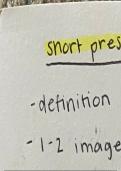 short pres
-definition
-1-2 image